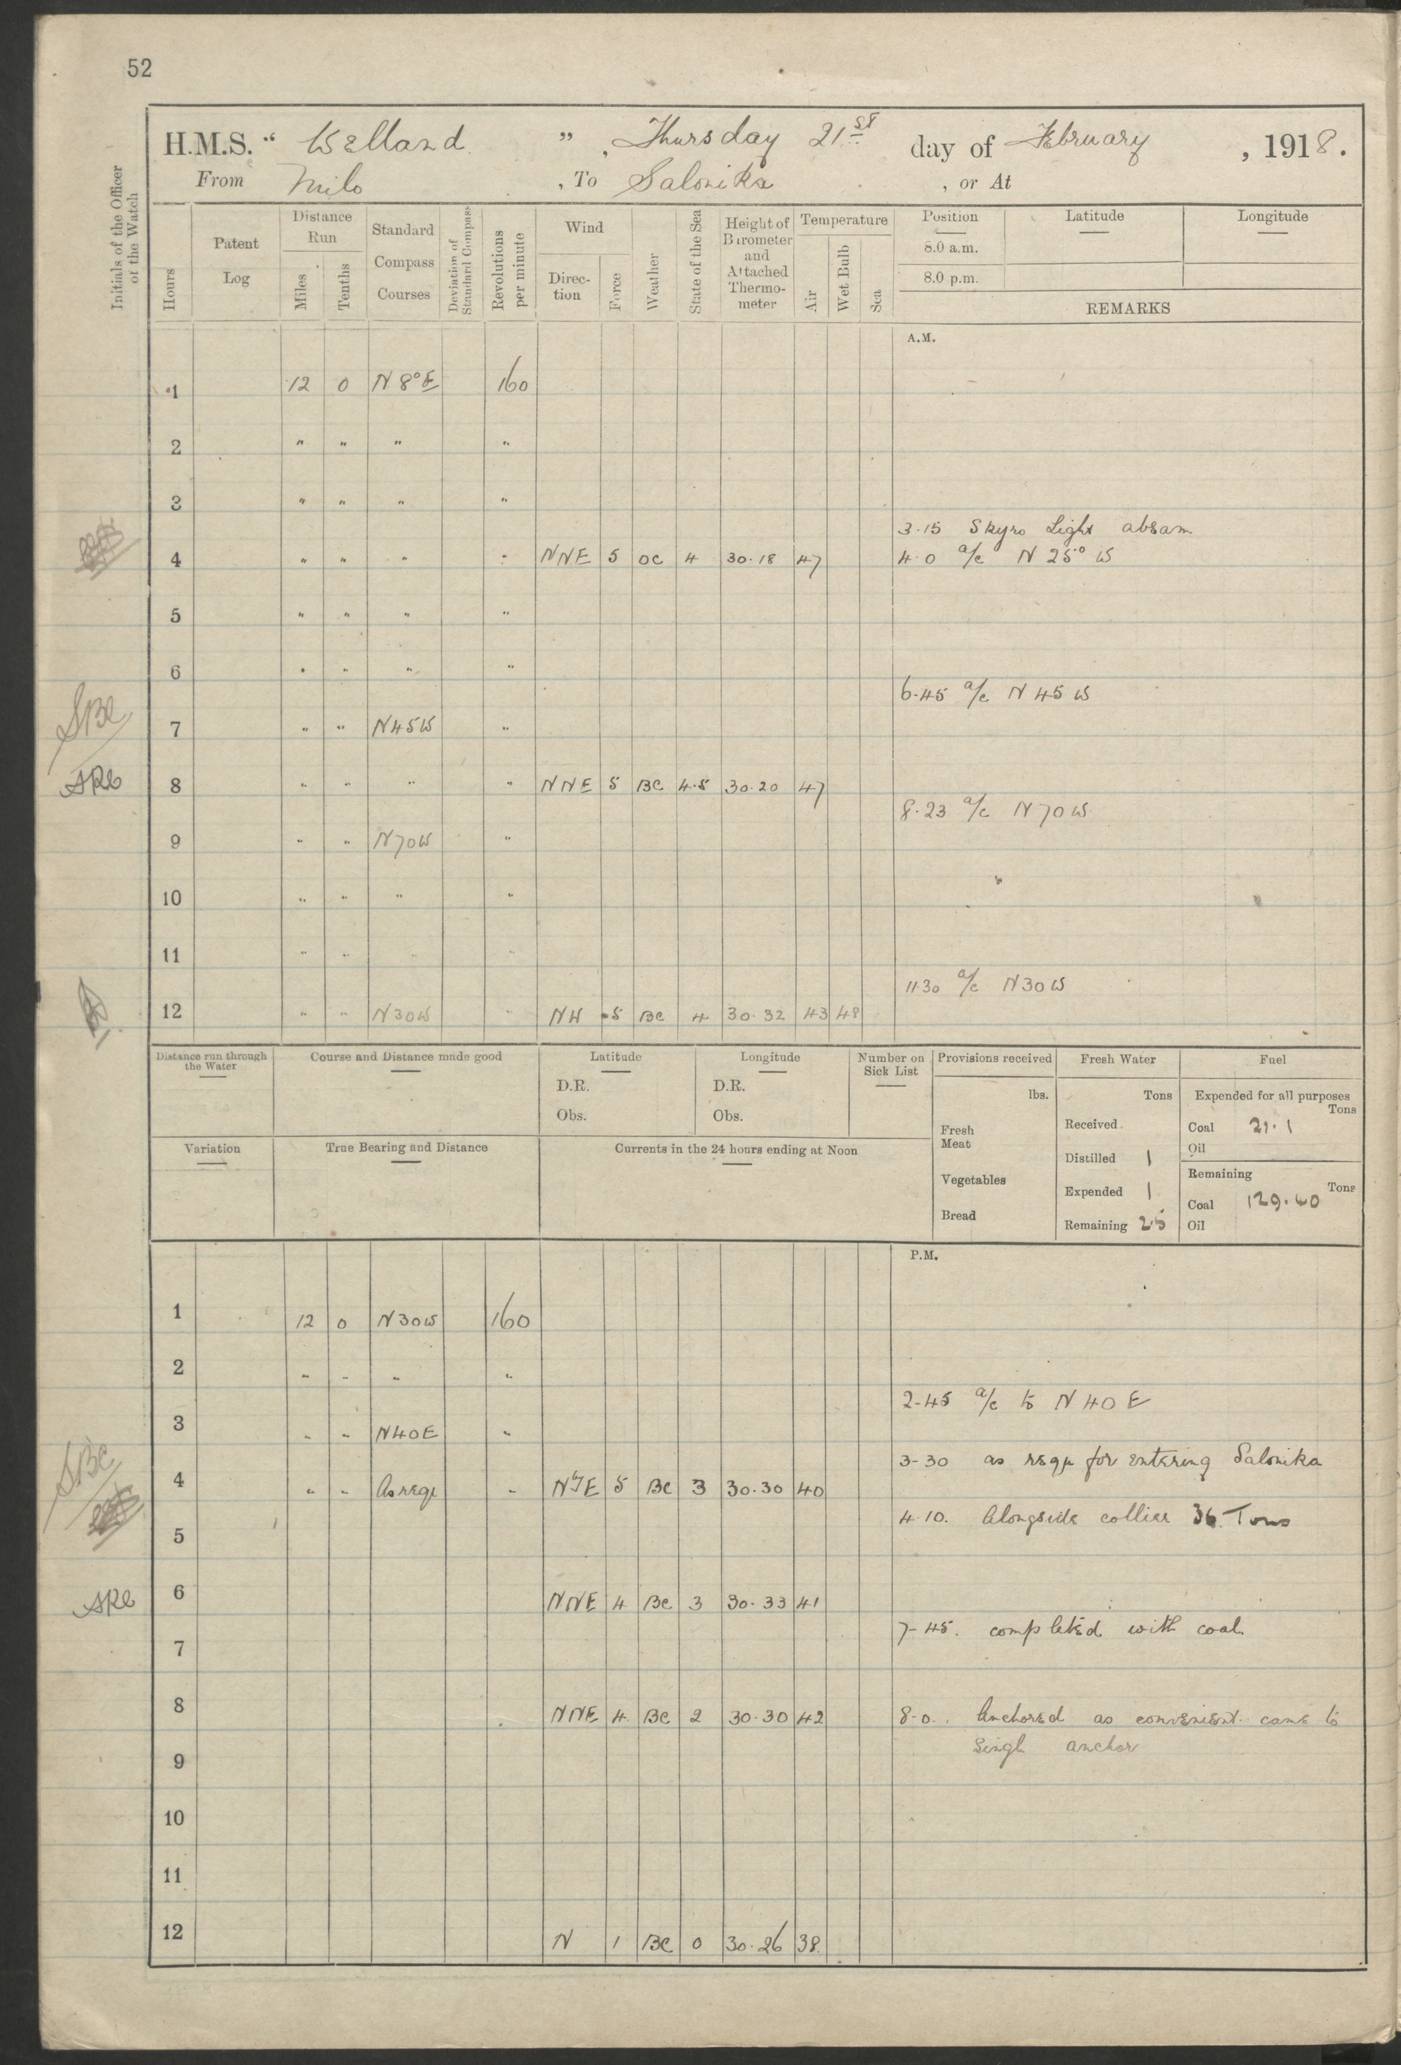 52
H.M.S. “ Welland ” , Thursday 21st day of February , 1918.
From Milo , To Salonika , or At
Initials of the Officer of the Watch
Hours
Patent Log
Distance Run
Miles
Tenths
Standard Compass Courses
Deviation of Standard Compass
Revolutions per minute
Wind
Direction
Force
Weather
State of the Sea
Height of Barometer and Attached Thermometer
Temperature
Air
Wet Bulb
Sea
Position
Latitude
Longitude
8.0 a.m.
8.0 p.m.
REMARKS
A.M.
1 12 0 N 8° E 160
2 " " " "
3 " " " "
3.15 Skyro Light abeam
4 " " " " NNE 5 OC 4 30.18 47 4.0 a/c N 25° W
5 " " " "
6 " " " "
6.45 a/c N 45 W
SBC
7 " " N45W "
8 " " " " NNE 5 BC 4.5 30.20 47
8.23 a/c N 70 W
9 " " N70W "
10 " " " "
11 " " " "
11.30 a/c N 30 W
12 " " N30W " NW 5 BC 4 30.32 43 48
Distance run through the Water
Course and Distance made good
Latitude
D.R.
Obs.
Longitude
D.R.
Obs.
Number on Sick List
Provisions received
lbs.
Fresh Meat
Vegetables
Bread
Fresh Water
Tons
Received
Distilled 1
Expended 1
Remaining 25
Fuel
Expended for all purposes
Tons
Coal 21.1
Oil
Remaining
Tons
Coal 129.40
Oil
Variation
True Bearing and Distance
Currents in the 24 hours ending at Noon
P.M.
1 12 0 N30W 160
2 " " " "
2-45 a/c to N 40 E
3 " " N40E "
3-30 as reqr for entering Salonika
SBC
4 " " As reqr " N'ly E 5 BC 3 30.30 40
4.10. Alongside collier 36 Tons
5
6 NNE 4 BC 3 30.33 41
7-45. completed with coal
7
8 NNE 4 BC 2 30.30 42 8-0. Anchored as convenient. came to
single anchor
9
10
11
12 N 1 BC 0 30.26 38